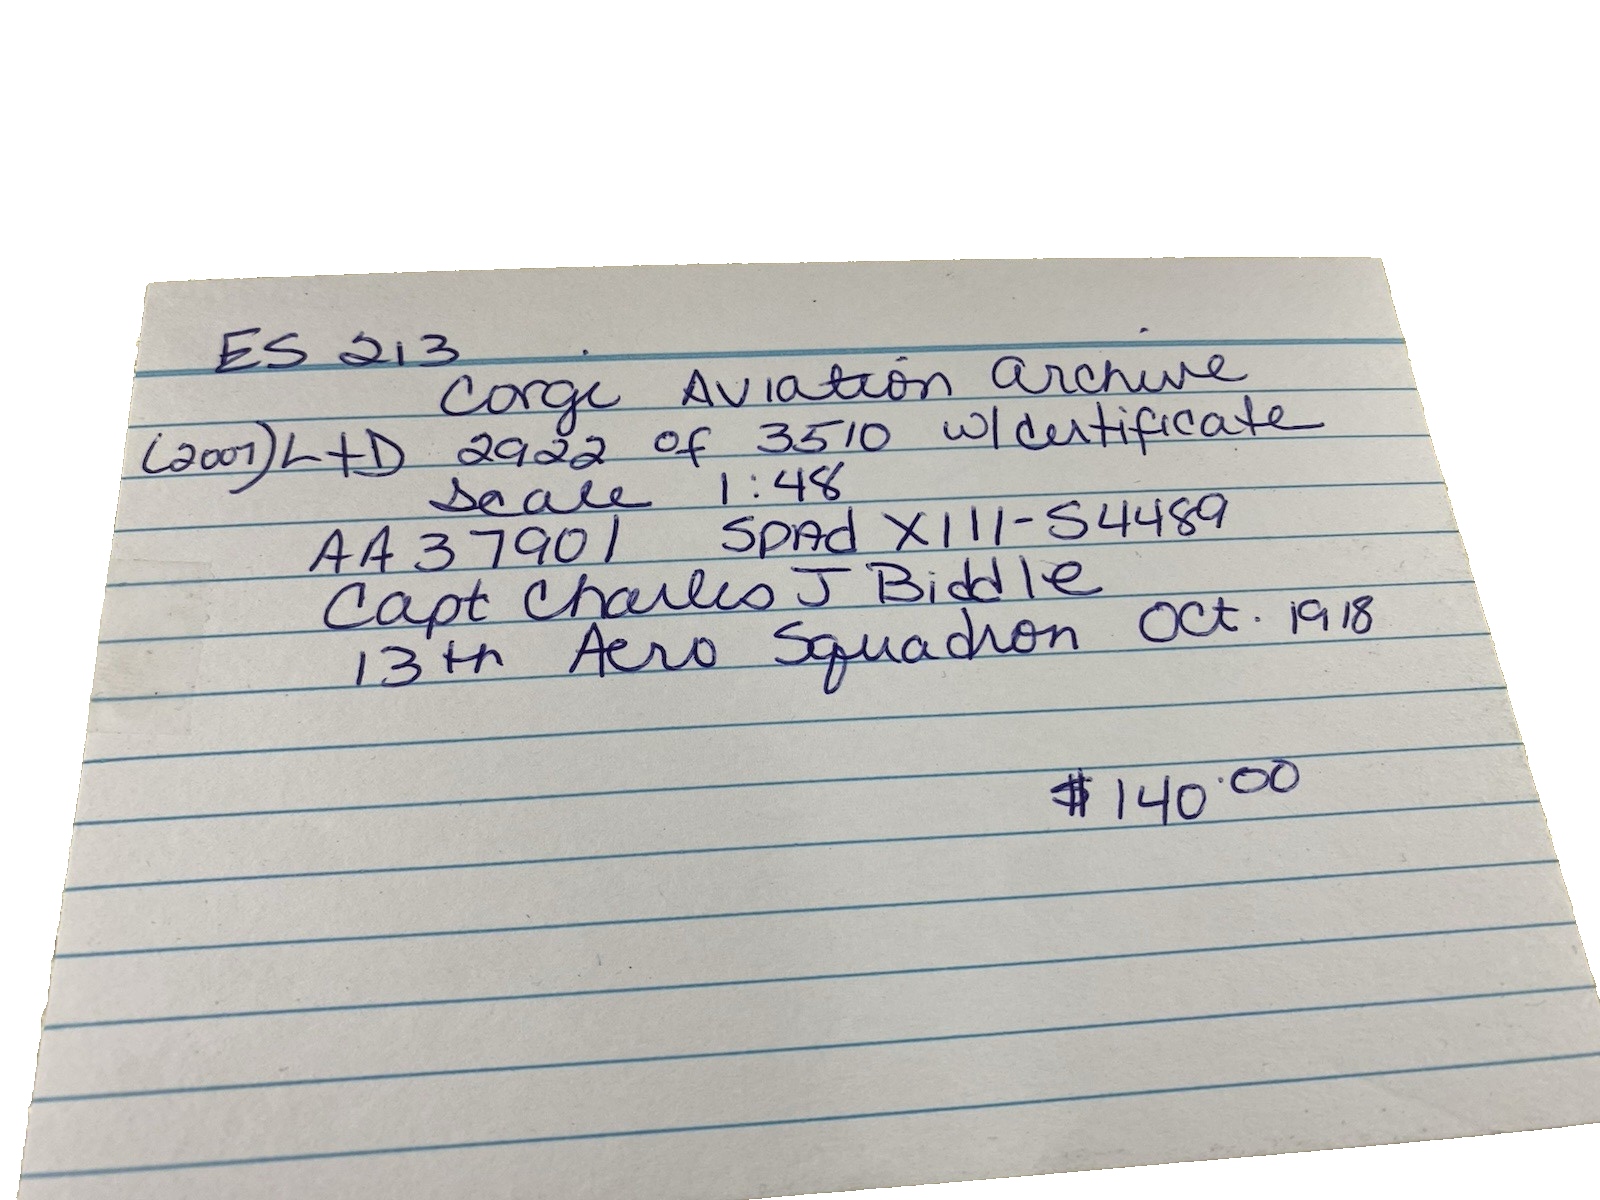 ES 213
Corgi Aviation Archive
(2007) LTD 2922 of 3510 w/certificate
Scale 1:48
AA37901 SPAd XIII-S4489
Capt Charles J Biddle
13th Aero Squadron Oct. 1918
$140.00